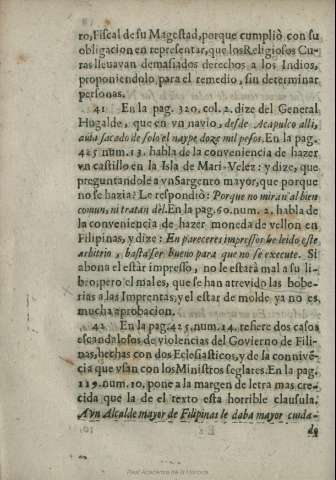 ro, Fiscal de su Magestad, porque cumpliò con su
obligacion en representar, que los Religiosos Cu-
ras llevavan demasiados derechos a los Indios,
proponiendolo para el remedio, sin determinar
personas.
41 En la pag. 320. col. 2. dize del General
Hugalde, que en vn navio, desde Acapulco alli,
avia sacado de solo el naype doze mil pesos. En la pag.
425 num. 13. habla de la conveniencia de hazer
vn castillo en la Isla de Mari-Velez: y dize, que
preguntandole a vn Sargento mayor, que porque
no se hazia? Le respondiò: Porque no miran al bien
comun, ni tratan dèl. En la pag. 60. num. 2. habla de
la conveniencia de hazer moneda de vellon en
Filipinas, y dize: En pareceres impressos he leido este
arbitrio, basta ser bueno para que no se execute. Si
abona el estàr impresso, no le estarà mal a su li-
bro; pero el mal es, que se han atrevido las bobe-
rias a las Imprentas, y el estar de molde ya no es
mucha aprobacion.
42 En la pag. 425. num. 14. refiere dos casos
escandalosos de violencias del Govierno de Fili-
nas, hechas con dos Eclesiasticos, y de la conniven-
cia que vsan con los Ministros seglares. En la pag.
119. num. 10. pone a la margen de letra mas cre-
cida que la de el texto esta horrible clausula.
A vn Alcalde mayor de Filipinas le daba mayor cuida-
do
Real Academia de la Historia